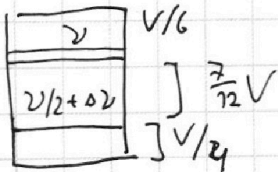 ν V/6
ν/2 + Δν ] 7/12 V
] V/4